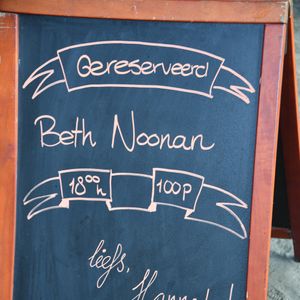 Gereserveerd
Beth Noonan
18⁰⁰h 100p
liefs,